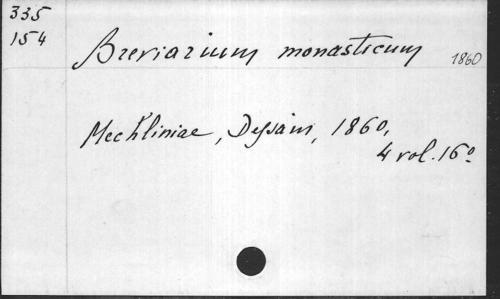 335
154
Breviarium monasticum
1860
Mechliniae, Dessain, 1860,
4 vol. 16º